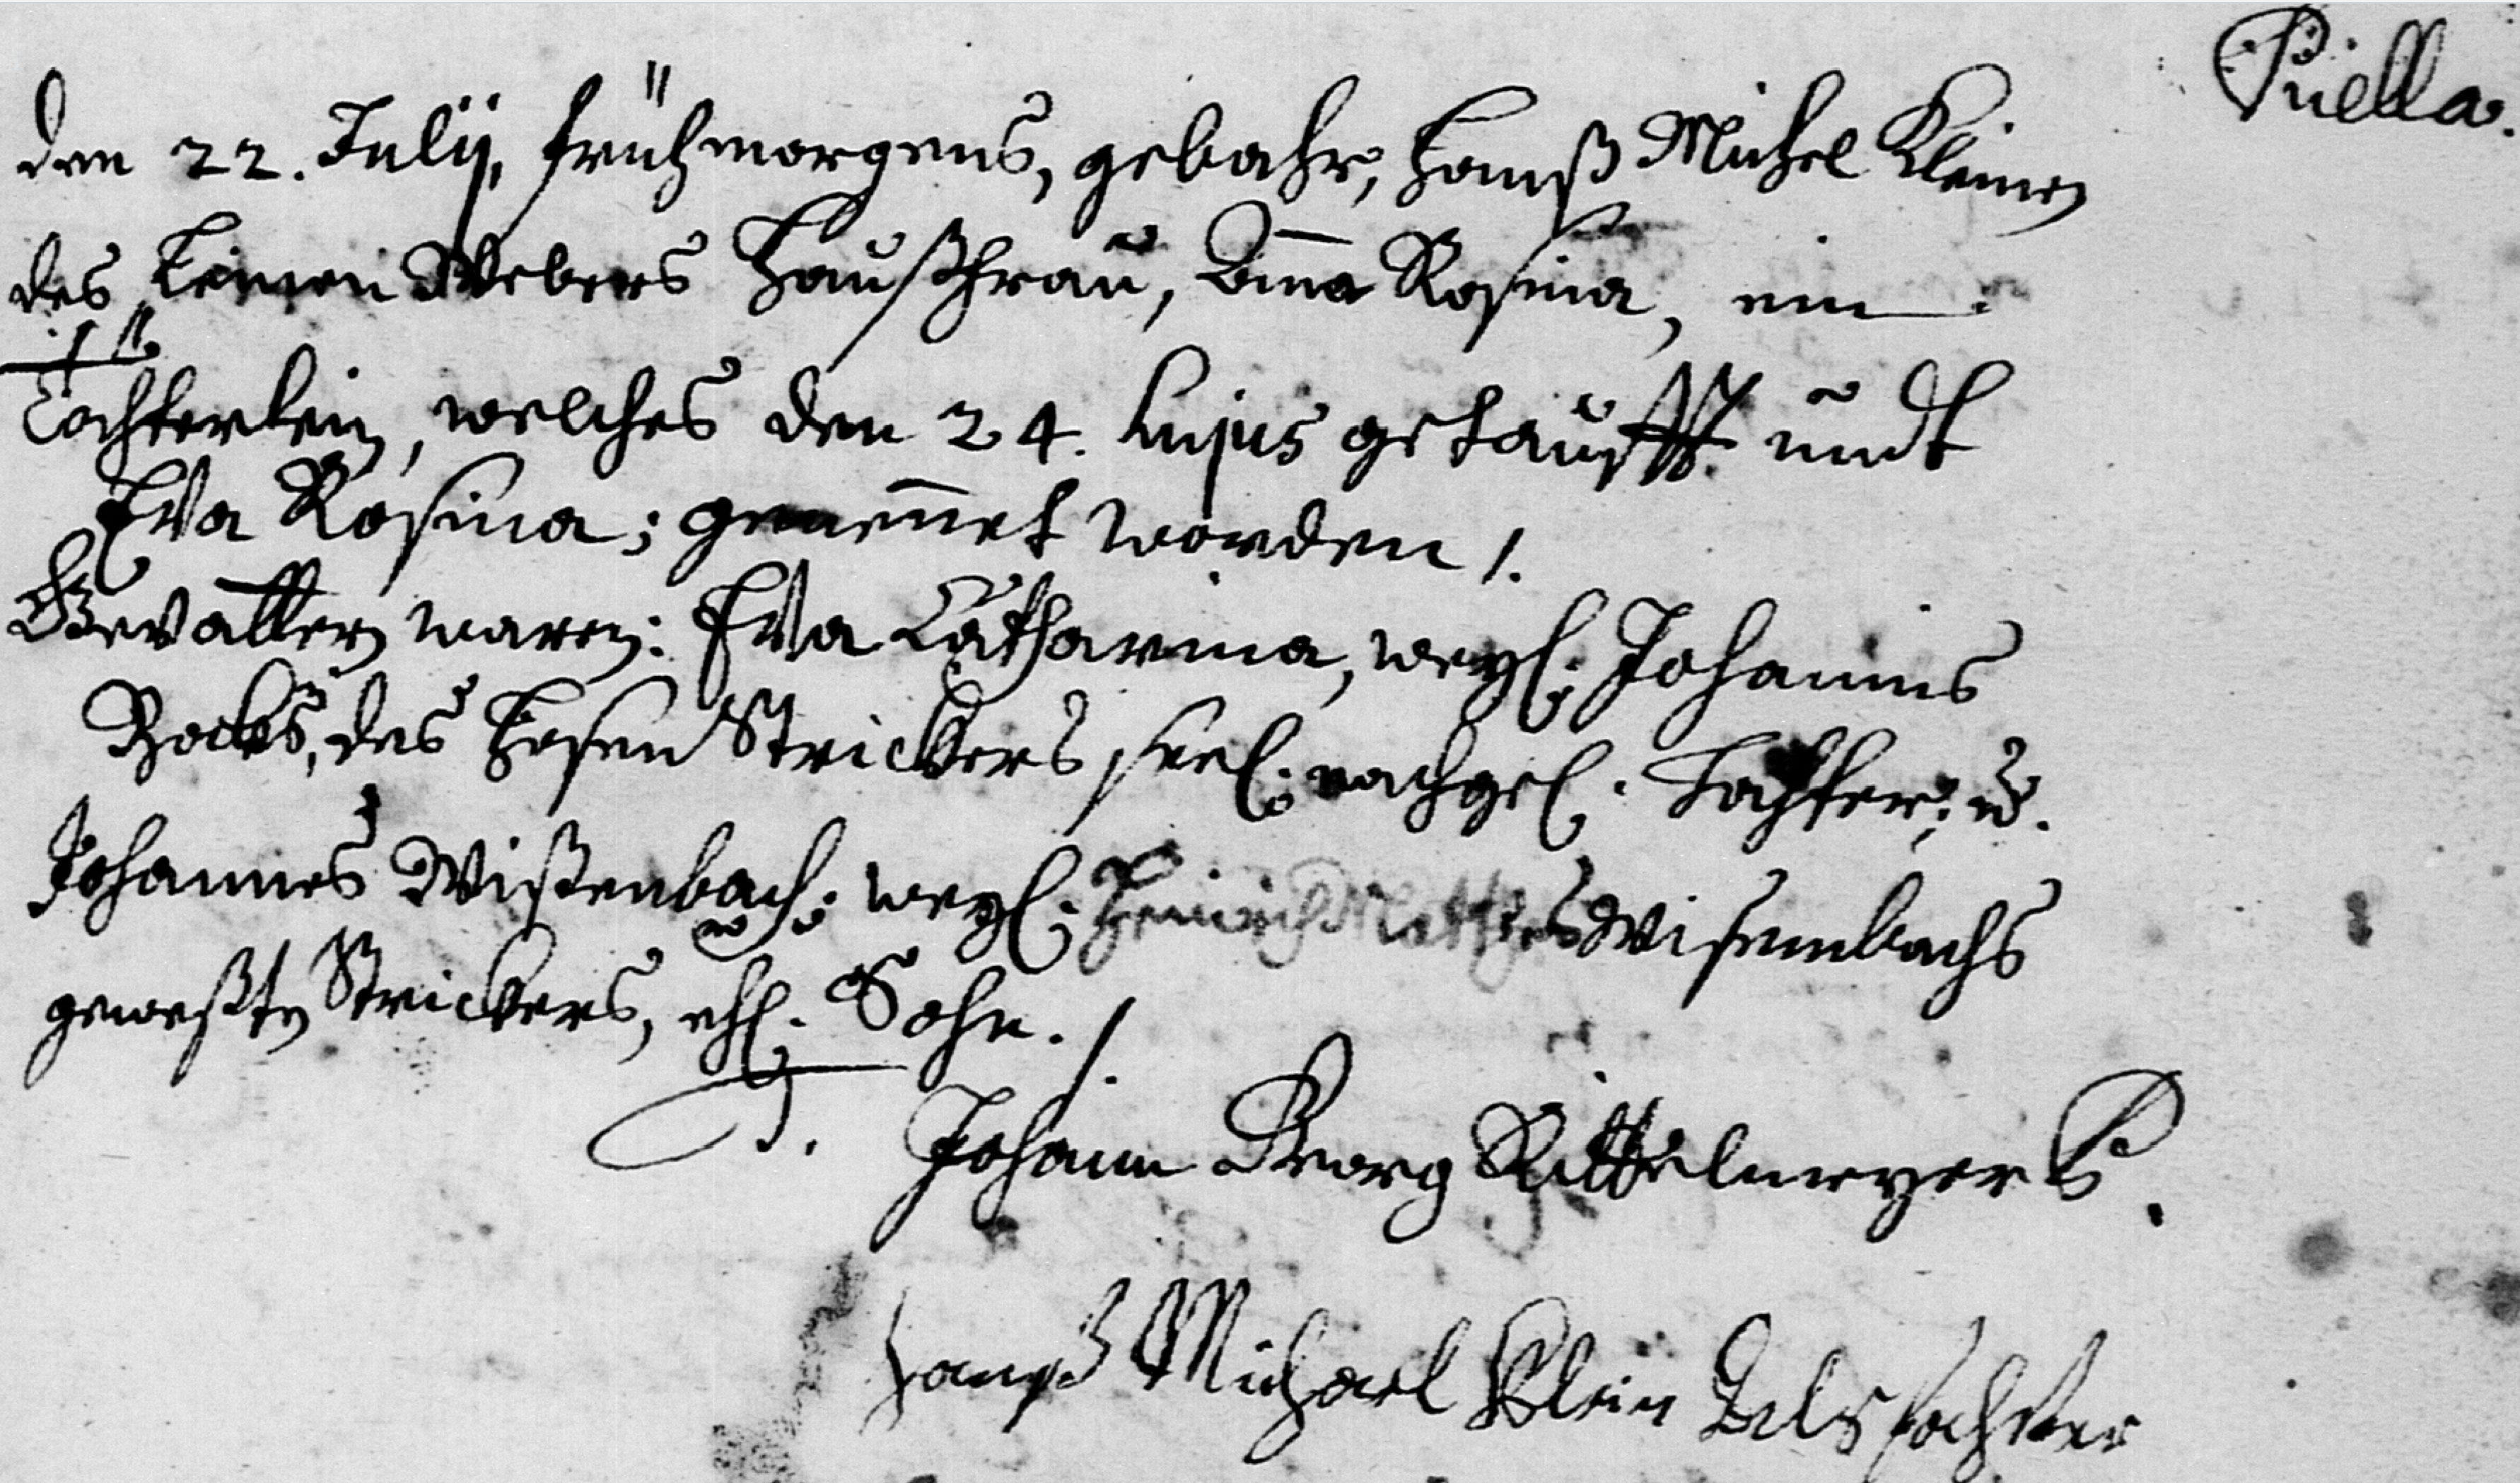 Puella.
den 22. Julij, frühmorgens, gebahr, Hannß Michel Kleinen
des Leinen Webers Haußfrau, Anna Rosina, ein
Töchterlein, welches den 24. hujus getaufft undt
Eva Rosina; genen̄et worden /.
Gevattern waren: Eva Catharina, weyl: Johannes
Bocks, des Hosen Strickers seel: nachgel. Tochter; u.
Johannes Wißenbach: weyl: Heinrich Matthes Wisenbachs
geweßten Strickers, ehl. Sohn. /.
T. Johann Georg Rittelmeyer P.
Hanß Michael Klein als